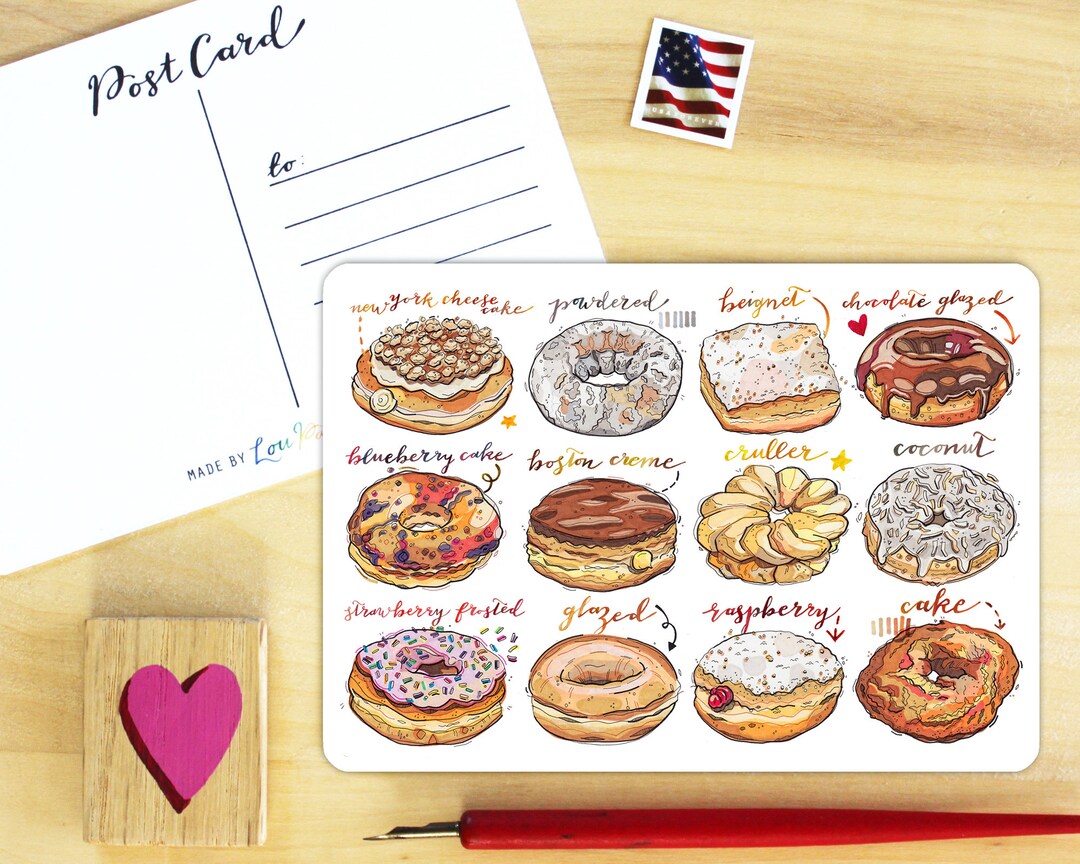 Post Card
to:
MADE BY Lou
new york cheese
cake
powdered
beignet
chocolate glazed
blueberry cake
boston creme
cruller
coconut
strawberry frosted
glazed
raspberry
cake